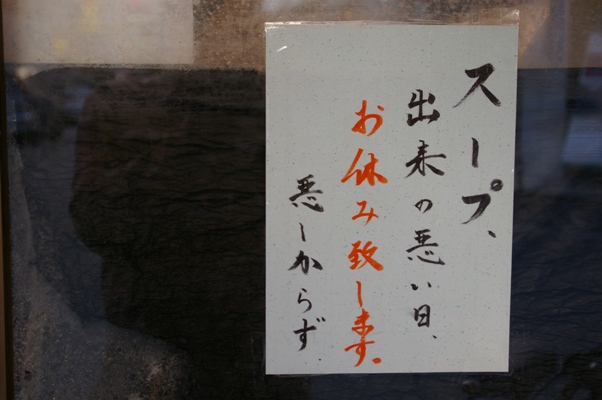 スープ、
出来の悪い日、
お休み致します。
悪しからず、